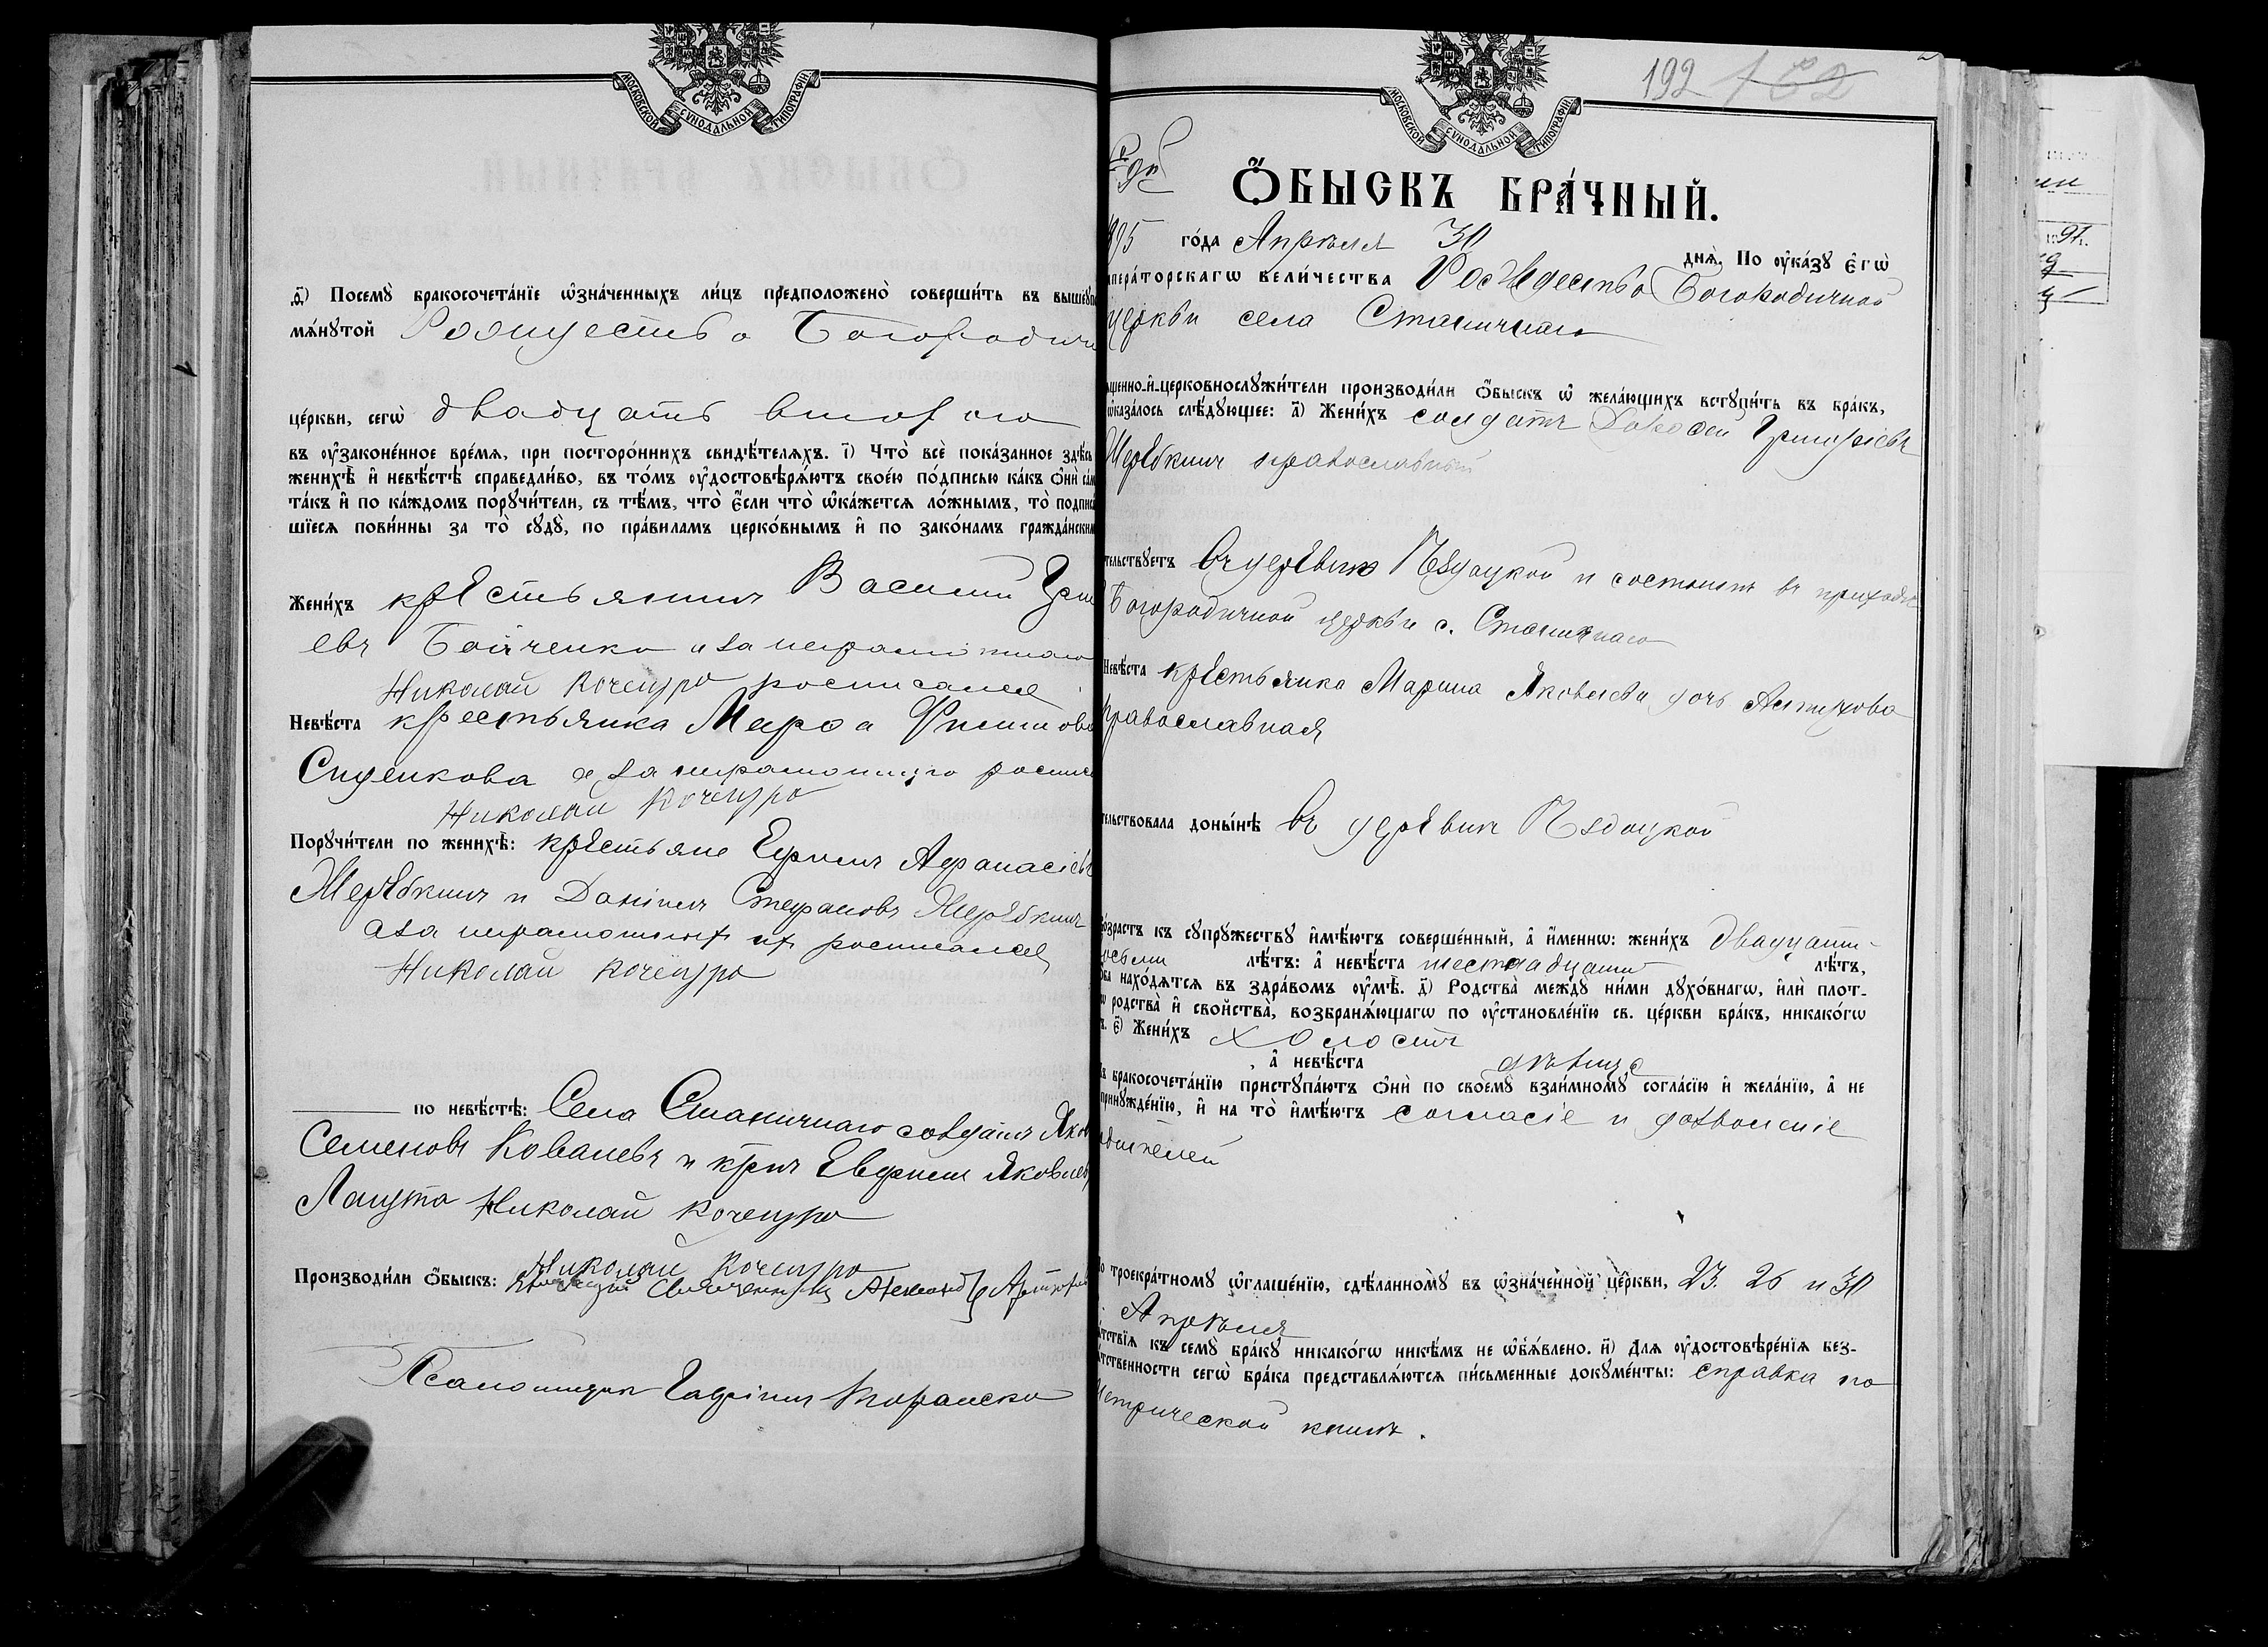 МОСКОВСКОЙ СѴНОДАЛЬНОЙ ТИПОГРАФІИ
ѳ҃) Посемꙋ̀ бракосочета́нїе ѡ҆зна́ченныхъ ли́цъ предположено̀ соверши́ть въ вышеꙋпо
мѧ́нꙋтой Рождество Богородичн
це́ркви, сегѡ̀ двадцать второго
въ ᲂу҆законе́нное вре́мѧ, при посторо́ннихъ свидѣ́телѧхъ. і҃) Что̀ всѐ пока́занное здѣ́сь
женихѣ̀ и҆ невѣ́стѣ справедли́во, въ то́мъ ᲂу҆достовѣрѧ́ютъ свое́ю по́дписью ка́къ ѻ҆нѝ са́м
та́къ и҆ по ка́ждомъ порꙋчи́тели, съ тѣ́мъ, что̀ є҆́сли что̀ ѡ҆ка́жетсѧ ло́жнымъ, то̀ подписа
шїесѧ пови́нны за то̀ сꙋдꙋ̀, по пра́виламъ церко́внымъ и҆ по зако́намъ гражда́нским
Жени́хъ крестьянинъ Василий Гри
евъ Бойченко а за неграмотнаго
Николай Кочемуро росписался
Невѣ́ста крестьянка Марѳа Филипова
а за неграмотную росписа
Николай Кочемуро
Порꙋчи́тели по женихѣ̀: крестьяне Ефимъ Афанасіевъ
Жеребкинъ и Даніилъ Стефановъ Жеребкинъ
а за неграмотныхъ ихъ росписался
Николай Кочемуро
по невѣ́стѣ: Села Станичнаго солдатъ Яков
Семеновъ Ковалевъ и кр-нъ Евфимъ Яковлев
Лапута Николай Кочемуро
Николай Кочемуро
Производи́ли ѻ҆́быскъ: Священникъ Александръ
Псаломщикъ Гавріилъ
192 182
МОСКОВСКОЙ СѴНОДАЛЬНОЙ ТИПОГРАФІИ
Ѻ҆́БЫСКЪ БРА́ЧНЫЙ.
895 го́да Апрѣля 30 днѧ̀. По ᲂу҆ка́зꙋ є҆гѡ̀
мпера́торскагѡ вели́чества Рождество Богородичной
церкви села Станичнаго
щенно-и҆-церковнослꙋжи́тели производи́ли ѻ҆́быскъ ѡ҆ жела́ющихъ встꙋпи́ть въ бра́къ,
ѡ҆каза́лось слѣ́дꙋющее: а҃) Жени́хъ солдатъ Григоріевъ
Жеребкинъ православный
тельствꙋетъ въ деревнѣ и состоитъ въ приходѣ
Богородичной церкви с. Станичнаго
Невѣ́ста крестьянка Марина Яковлева дочь
православная
ельствовала доны́нѣ въ деревнѣ
во́зрастъ къ сꙋпрꙋ́жествꙋ и҆мѣ́ютъ соверше́нный, а҆ и҆́меннѡ: жени́хъ двадцати
восьми лѣ́тъ: а҆ невѣ́ста шестнадцати лѣ́тъ,
ѻба нахо́дѧтсѧ въ здра́вомъ ᲂу҆мѣ̀. д҃) Родства̀ междꙋ̀ ни́ми дꙋхо́внагѡ, и҆лѝ плот-
ѡ родства̀ и҆ свойства̀, возбранѧ́ющагѡ по ᲂу҆становле́нїю св. це́ркви бра́къ, никако́гѡ
ъ. є҃) Жени́хъ холостъ
, а҆ невѣ́ста дѣвица
ъ бракосочета́нїю пристꙋпа́ютъ ѻ҆нѝ по своемꙋ̀ взаи́мномꙋ согла́сїю и҆ жела́нїю, а҆ не
принꙋжде́нїю, и҆ на то̀ и҆мѣ́ютъ согласіе и дозволеніе
одителей
о троекра́тномꙋ ѡ҆глаше́нїю, сдѣ́ланномꙋ въ ѡ҆зна́ченной це́ркви, 23. 26 и 30
Апрѣля
ѧ́тствїѧ къ семꙋ̀ бра́кꙋ никако́гѡ никѣ́мъ не ѡ҆б̾ѧ́влено. и҃) Длѧ ᲂу҆достовѣре́нїѧ без-
ѧ́тственности сегѡ̀ бра́ка представлѧ́ютсѧ пи́сьменные докꙋме́нты: справка по
метрической книгѣ.